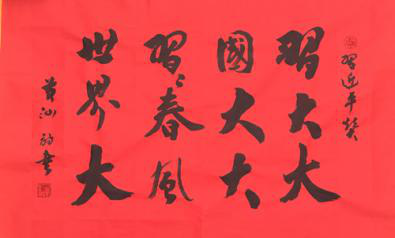 習近平贊
習大大
國大大
習習春風
世界大
黃汕的書